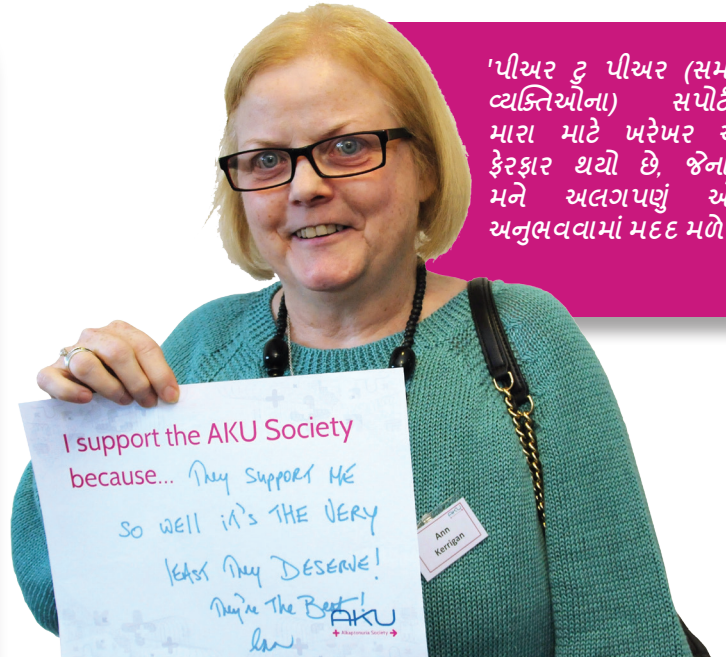 'પીઅર ટુ પીઅર (સમ
વ્યક્તિઓના) સપોર્ટ
મારા માટે ખરેખર
ફેરફાર થયો છે, જેના
મને અલગપણું
અનુભવવામાં મદદ મળે
I support the AKU Society
because... They SUPPORT ME
SO WELL iT'S THE VERY
lEAST They DESERVE!
They're The Best!
AKU
Alkaptonuria Society
Ann
Kerrigan